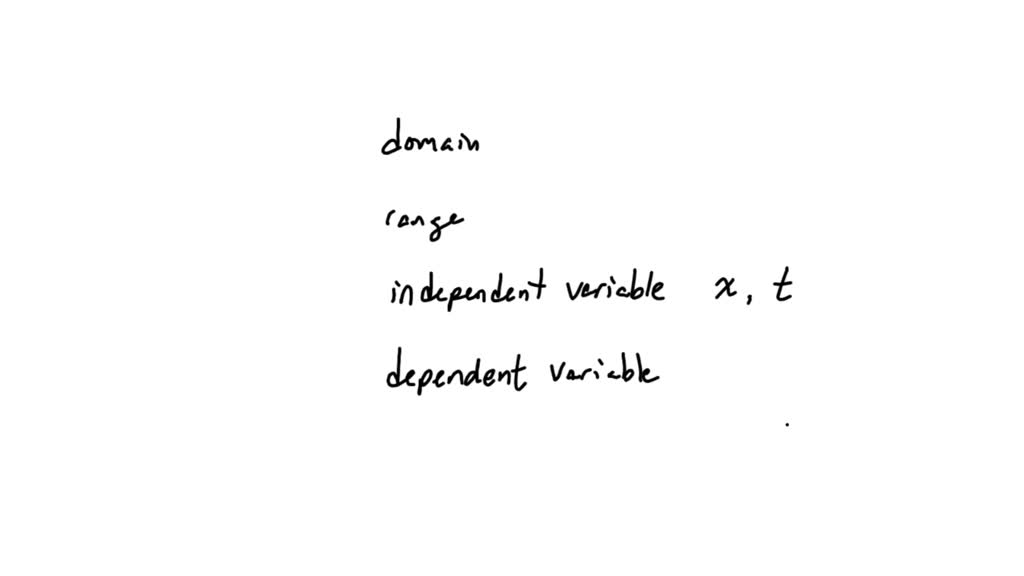 domain
range
independent variable x, t
dependent variable